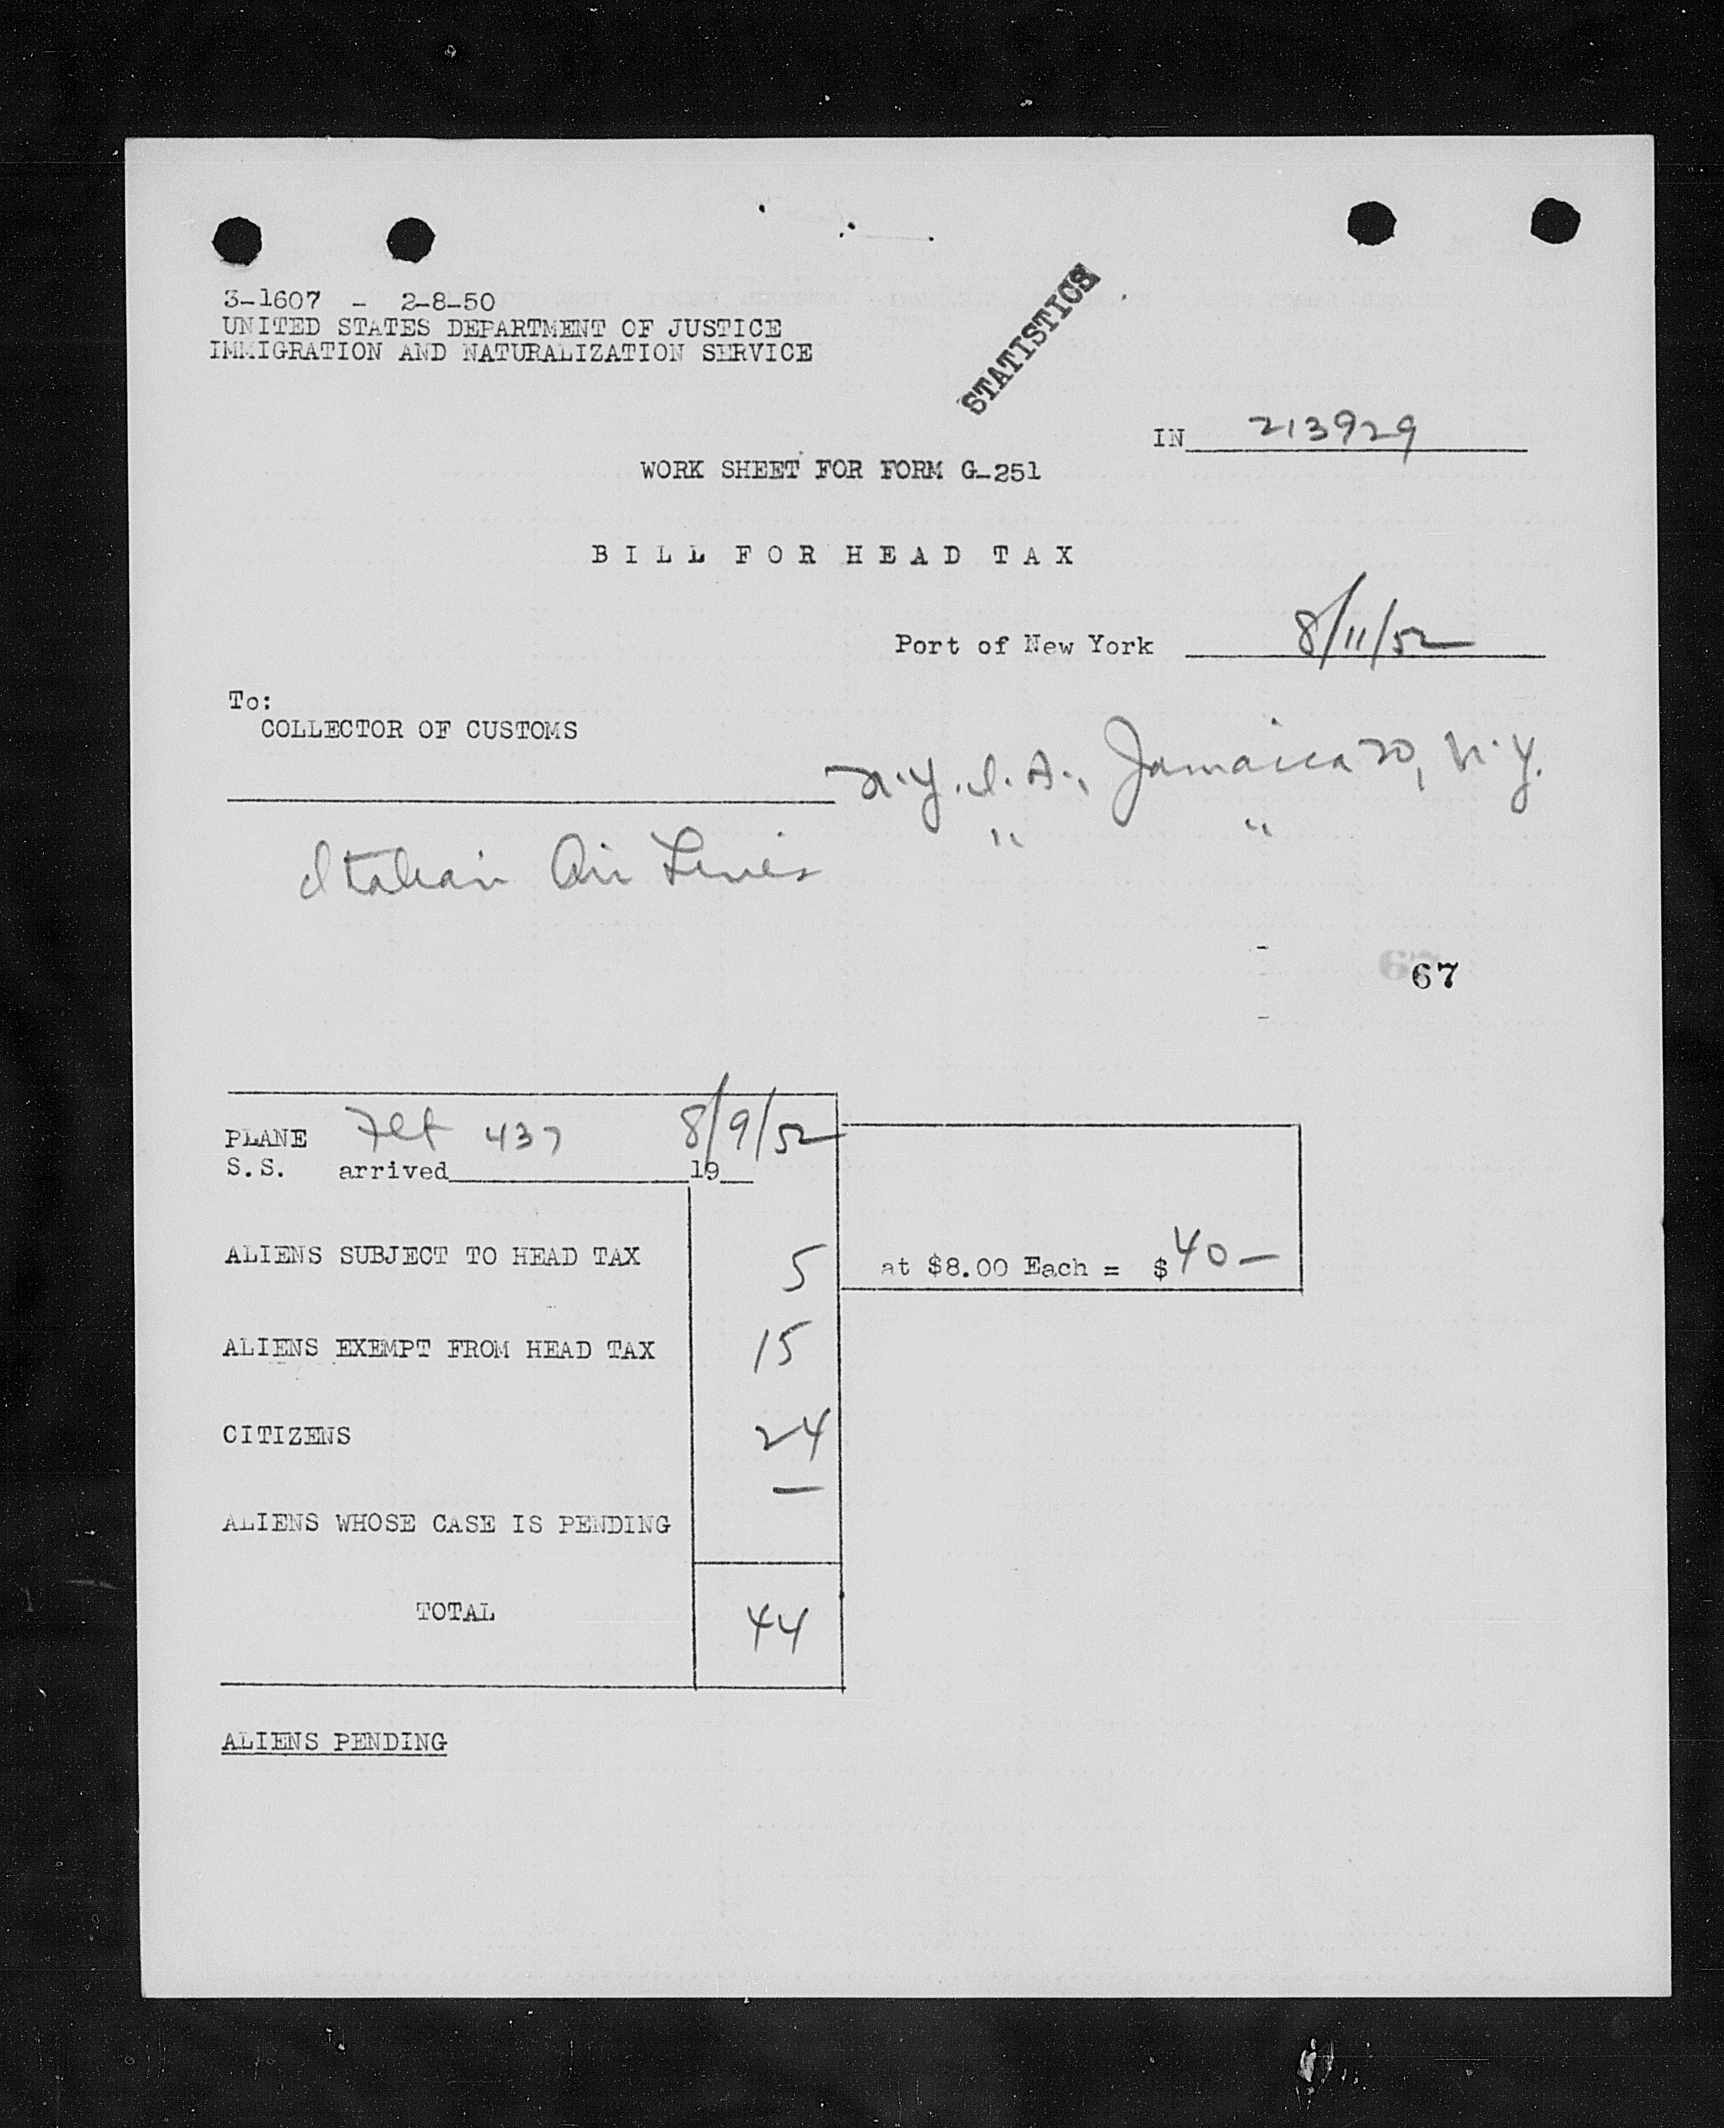 3-1607 - 2-8-50
UNITED STATES DEPARTMENT OF JUSTICE
IMMIGRATION AND NATURALIZATION SERVICE
STATISTICS
IN 213929
WORK SHEET FOR FORM G-251
BILL FOR HEAD TAX
Port of New York 8/11/52
To:
COLLECTOR OF CUSTOMS
N.Y.I.A., Jamaica 20, N.Y.
Italian Air Lines " "
67
PLANE Flt 437 8/9/52
S.S. arrived 19
ALIENS SUBJECT TO HEAD TAX 5 at $8.00 Each = $40-
ALIENS EXEMPT FROM HEAD TAX 15
CITIZENS 24
ALIENS WHOSE CASE IS PENDING -
TOTAL 44
ALIENS PENDING